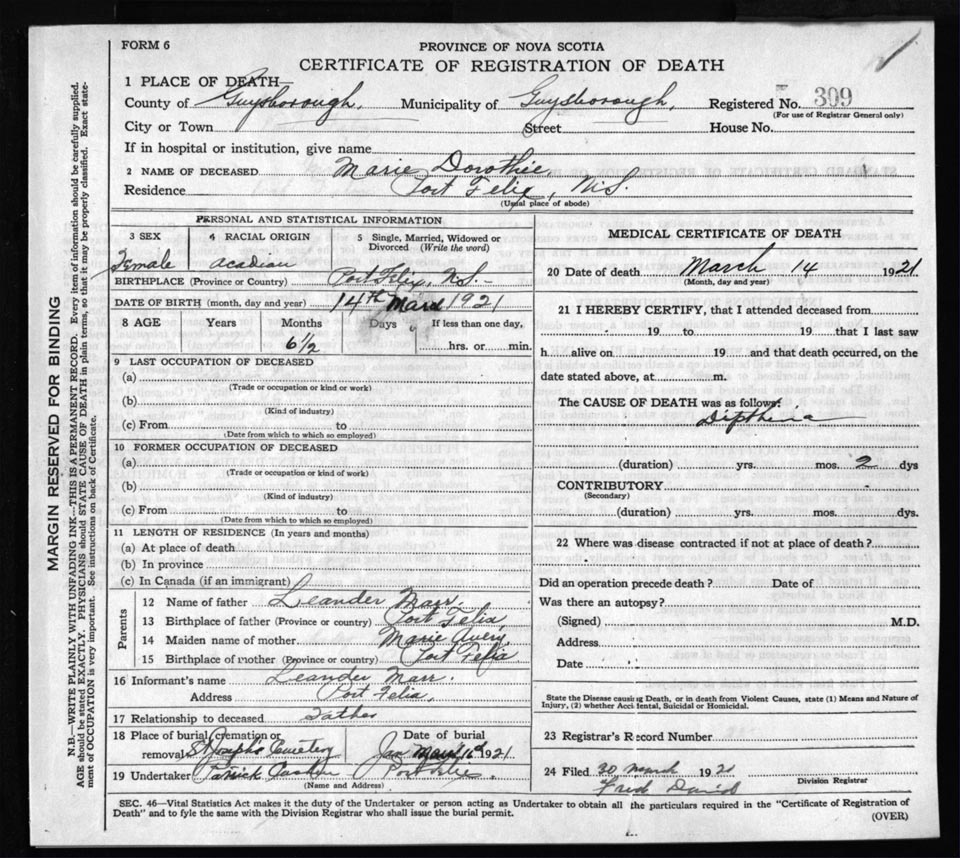 FORM 6
PROVINCE OF NOVA SCOTIA
CERTIFICATE OF REGISTRATION OF DEATH
1 PLACE OF DEATH
County of Guysborough, Municipality of Guysborough, Registered No. 309
(For use of Registrar General only)
City or Town Street House No.
If in hospital or institution, give name
2 NAME OF DECEASED Marie Dorothie,
Residence Port Felix, N.S.
(Usual place of abode)
PERSONAL AND STATISTICAL INFORMATION
3 SEX 4 RACIAL ORIGIN 5 Single, Married, Widowed or Divorced (Write the word)
Female Acadian
BIRTHPLACE (Province or Country) Port Felix, N.S.
DATE OF BIRTH (month, day and year) 14th March 1921
8 AGE Years Months Days If less than one day,
6 1/2 hrs. or min.
9 LAST OCCUPATION OF DECEASED
(a)
(Trade or occupation or kind or work)
(b)
(Kind of industry)
(c) From to
(Date from which to which so employed)
10 FORMER OCCUPATION OF DECEASED
(a)
(Trade or occupation or kind of work)
(b)
(Kind of industry)
(c) From to
(Date from which to which so employed)
11 LENGTH OF RESIDENCE (In years and months)
(a) At place of death
(b) In province
(c) In Canada (if an immigrant)
Parents
12 Name of father Leander Marr,
13 Birthplace of father (Province or country) Port Felix,
14 Maiden name of mother Marie Avery,
15 Birthplace of mother (Province or country) Port Felix
16 Informant's name Leander Marr.
Address Port Felix,
17 Relationship to deceased Father
18 Place of burial, cremation or removal St Joseph's Cemetery
Date of burial Jan March 16th 1921
19 Undertaker Patrick Port Felix.
(Name and Address)
MEDICAL CERTIFICATE OF DEATH
20 Date of death March 14 1921
(Month, day and year)
21 I HEREBY CERTIFY, that I attended deceased from
19 to 19 that I last saw
h alive on 19 and that death occurred, on the
date stated above, at m.
The CAUSE OF DEATH was as follows:
Diptheria
(duration) yrs. mos. 2 dys
CONTRIBUTORY
(Secondary)
(duration) yrs. mos. dys.
22 Where was disease contracted if not at place of death?
Did an operation precede death? Date of
Was there an autopsy?
(Signed) M.D.
Address
Date
State the Disease causing Death, or in death from Violent Causes, state (1) Means and Nature of
Injury, (2) whether Accidental, Suicidal or Homicidal.
23 Registrar's Record Number
24 Filed 30 March 1921
Fred David
Division Registrar
SEC. 46—Vital Statistics Act makes it the duty of the Undertaker or person acting as Undertaker to obtain all the particulars required in the "Certificate of Registration of
Death" and to fyle the same with the Division Registrar who shall issue the burial permit.
(OVER)
MARGIN RESERVED FOR BINDING
N.B.—WRITE PLAINLY WITH UNFADING INK—THIS IS A PERMANENT RECORD. Every item of information should be carefully supplied.
AGE should be stated EXACTLY. PHYSICIANS should STATE CAUSE OF DEATH in plain terms, so that it may be properly classified. Exact state-
ment of OCCUPATION is very important. See instructions on back of Certificate.